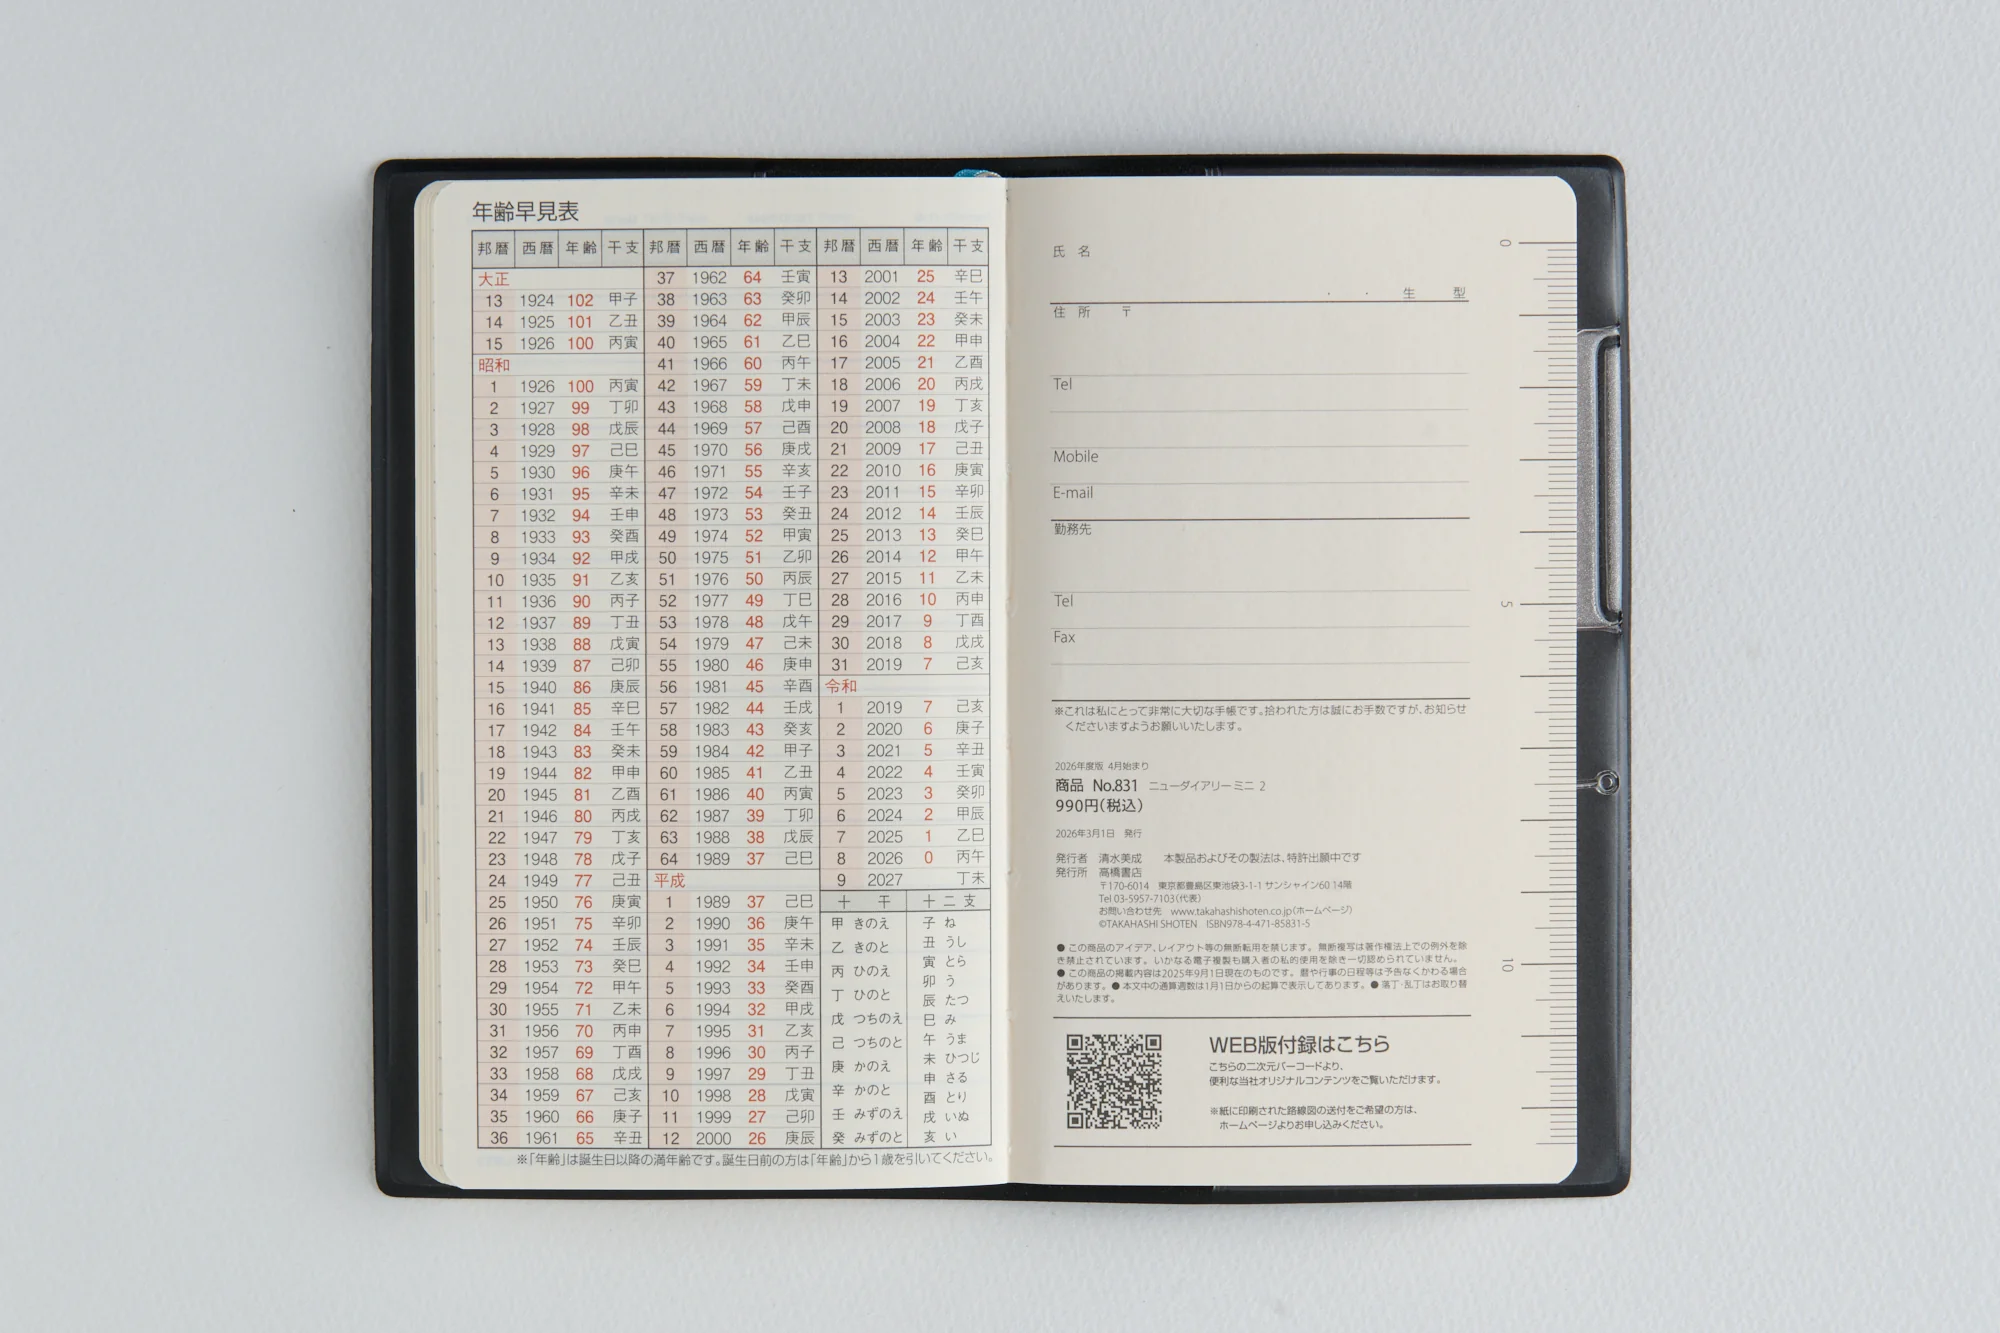 年齢早見表
邦暦 西暦 年齢 干支 邦暦 西暦 年齢 干支 邦暦 西暦 年齢 干支
大正
13 1924 102 甲子
14 1925 101 乙丑
15 1926 100 丙寅
昭和
1 1926 100 丙寅
2 1927 99 丁卯
3 1928 98 戊辰
4 1929 97 己巳
5 1930 96 庚午
6 1931 95 辛未
7 1932 94 壬申
8 1933 93 癸酉
9 1934 92 甲戌
10 1935 91 乙亥
11 1936 90 丙子
12 1937 89 丁丑
13 1938 88 戊寅
14 1939 87 己卯
15 1940 86 庚辰
16 1941 85 辛巳
17 1942 84 壬午
18 1943 83 癸未
19 1944 82 甲申
20 1945 81 乙酉
21 1946 80 丙戌
22 1947 79 丁亥
23 1948 78 戊子
24 1949 77 己丑
25 1950 76 庚寅
26 1951 75 辛卯
27 1952 74 壬辰
28 1953 73 癸巳
29 1954 72 甲午
30 1955 71 乙未
31 1956 70 丙申
32 1957 69 丁酉
33 1958 68 戊戌
34 1959 67 己亥
35 1960 66 庚子
36 1961 65 辛丑
37 1962 64 壬寅
38 1963 63 癸卯
39 1964 62 甲辰
40 1965 61 乙巳
41 1966 60 丙午
42 1967 59 丁未
43 1968 58 戊申
44 1969 57 己酉
45 1970 56 庚戌
46 1971 55 辛亥
47 1972 54 壬子
48 1973 53 癸丑
49 1974 52 甲寅
50 1975 51 乙卯
51 1976 50 丙辰
52 1977 49 丁巳
53 1978 48 戊午
54 1979 47 己未
55 1980 46 庚申
56 1981 45 辛酉
57 1982 44 壬戌
58 1983 43 癸亥
59 1984 42 甲子
60 1985 41 乙丑
61 1986 40 丙寅
62 1987 39 丁卯
63 1988 38 戊辰
64 1989 37 己巳
平成
1 1989 37 己巳
2 1990 36 庚午
3 1991 35 辛未
4 1992 34 壬申
5 1993 33 癸酉
6 1994 32 甲戌
7 1995 31 乙亥
8 1996 30 丙子
9 1997 29 丁丑
10 1998 28 戊寅
11 1999 27 己卯
12 2000 26 庚辰
13 2001 25 辛巳
14 2002 24 壬午
15 2003 23 癸未
16 2004 22 甲申
17 2005 21 乙酉
18 2006 20 丙戌
19 2007 19 丁亥
20 2008 18 戊子
21 2009 17 己丑
22 2010 16 庚寅
23 2011 15 辛卯
24 2012 14 壬辰
25 2013 13 癸巳
26 2014 12 甲午
27 2015 11 乙未
28 2016 10 丙申
29 2017 9 丁酉
30 2018 8 戊戌
31 2019 7 己亥
令和
1 2019 7 己亥
2 2020 6 庚子
3 2021 5 辛丑
4 2022 4 壬寅
5 2023 3 癸卯
6 2024 2 甲辰
7 2025 1 乙巳
8 2026 0 丙午
9 2027 丁未
十干
甲 きのえ
乙 きのと
丙 ひのえ
丁 ひのと
戊 つちのえ
己 つちのと
庚 かのえ
辛 かのと
壬 みずのえ
癸 みずのと
十二支
子 ね
丑 うし
寅 とら
卯 う
辰 たつ
巳 み
午 うま
未 ひつじ
申 さる
酉 とり
戌 いぬ
亥 い
※「年齢」は誕生日以降の満年齢です。誕生日前の方は「年齢」から1歳を引いてください。
氏名
・ ・ 生 型
住所 〒
Tel
Mobile
E-mail
勤務先
Tel
Fax
※これは私にとって非常に大切な手帳です。拾われた方は誠にお手数ですが、お知らせ
くださいますようお願いいたします。
2026年度版 4月始まり
商品 No.831 ニューダイアリー ミニ 2
990円(税込)
2026年3月1日 発行
発行者 清水美成 本製品およびその製法は、特許出願中です
発行所 高橋書店
〒170-6014 東京都豊島区東池袋3-1-1 サンシャイン60 14階
Tel 03-5957-7103(代表)
お問い合わせ先 www.takahashishoten.co.jp(ホームページ)
©TAKAHASHI SHOTEN ISBN978-4-471-85831-5
● この商品のアイデア、レイアウト等の無断転用を禁じます。無断複写は著作権法上での例外を除
き禁止されています。いかなる電子複製も購入者の私的使用を除き一切認められていません。
● この商品の掲載内容は2025年9月1日現在のものです。暦や行事の日程等は予告なくかわる場合
があります。● 本文中の通算週数は1月1日からの起算で表示してあります。● 落丁・乱丁はお取り替
えいたします。
WEB版付録はこちら
こちらの二次元バーコードより、
便利な当社オリジナルコンテンツをご覧いただけます。
※紙に印刷された路線図の送付をご希望の方は、
ホームページよりお申し込みください。
0
5
10